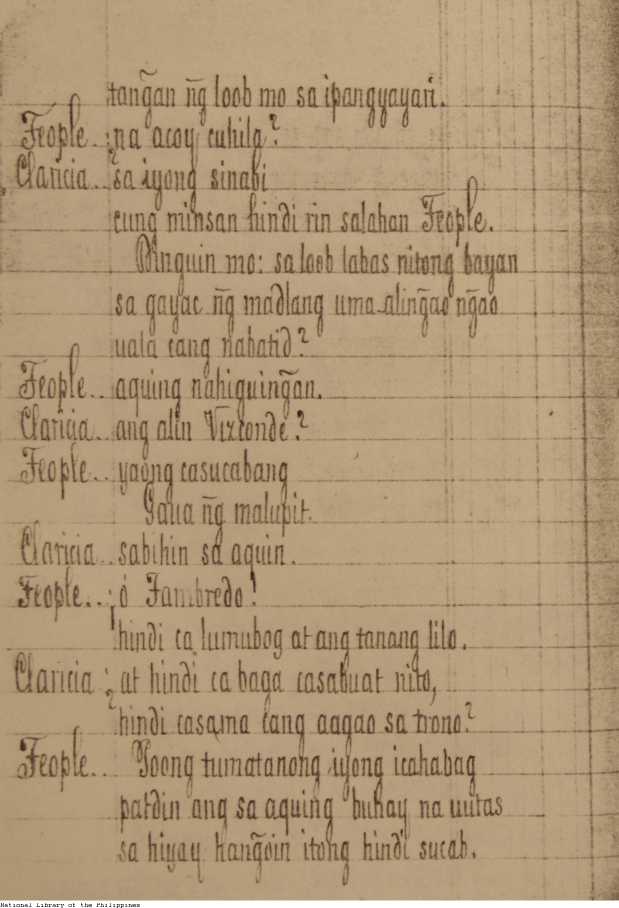 tang̃an ng̃ loob mo sa ipangyayari.
Feople.. na acoy cuhila?
Claricia.. sa iyong sinabi
cung minsan hindi rin salahan Feople.
Dinguin mo: sa loob labas nitong bayan
sa gayac ng̃ madlang uma-aling̃ao ng̃ao
uala cang nabatid?
Feople.. aquing nahiguing̃an.
Claricia.. ang alin Vizconde?
Feople.. yaong casucabang
Gaua ng̃ malupit.
Claricia.. sabihin sa aquin.
Feople.. ó Fambredo!
hindi ca lumubog at ang tanang lilo.
Claricia ¿at hindi ca baga casabuat nito,
hindi casama cang aagao sa trono?
Feople.. Yoong tumatanong iyong icahabag
patdin ang sa aquing buhay na uutas
sa hiyay hang̃oin itong hindi sucab.
National Library of the Philippines